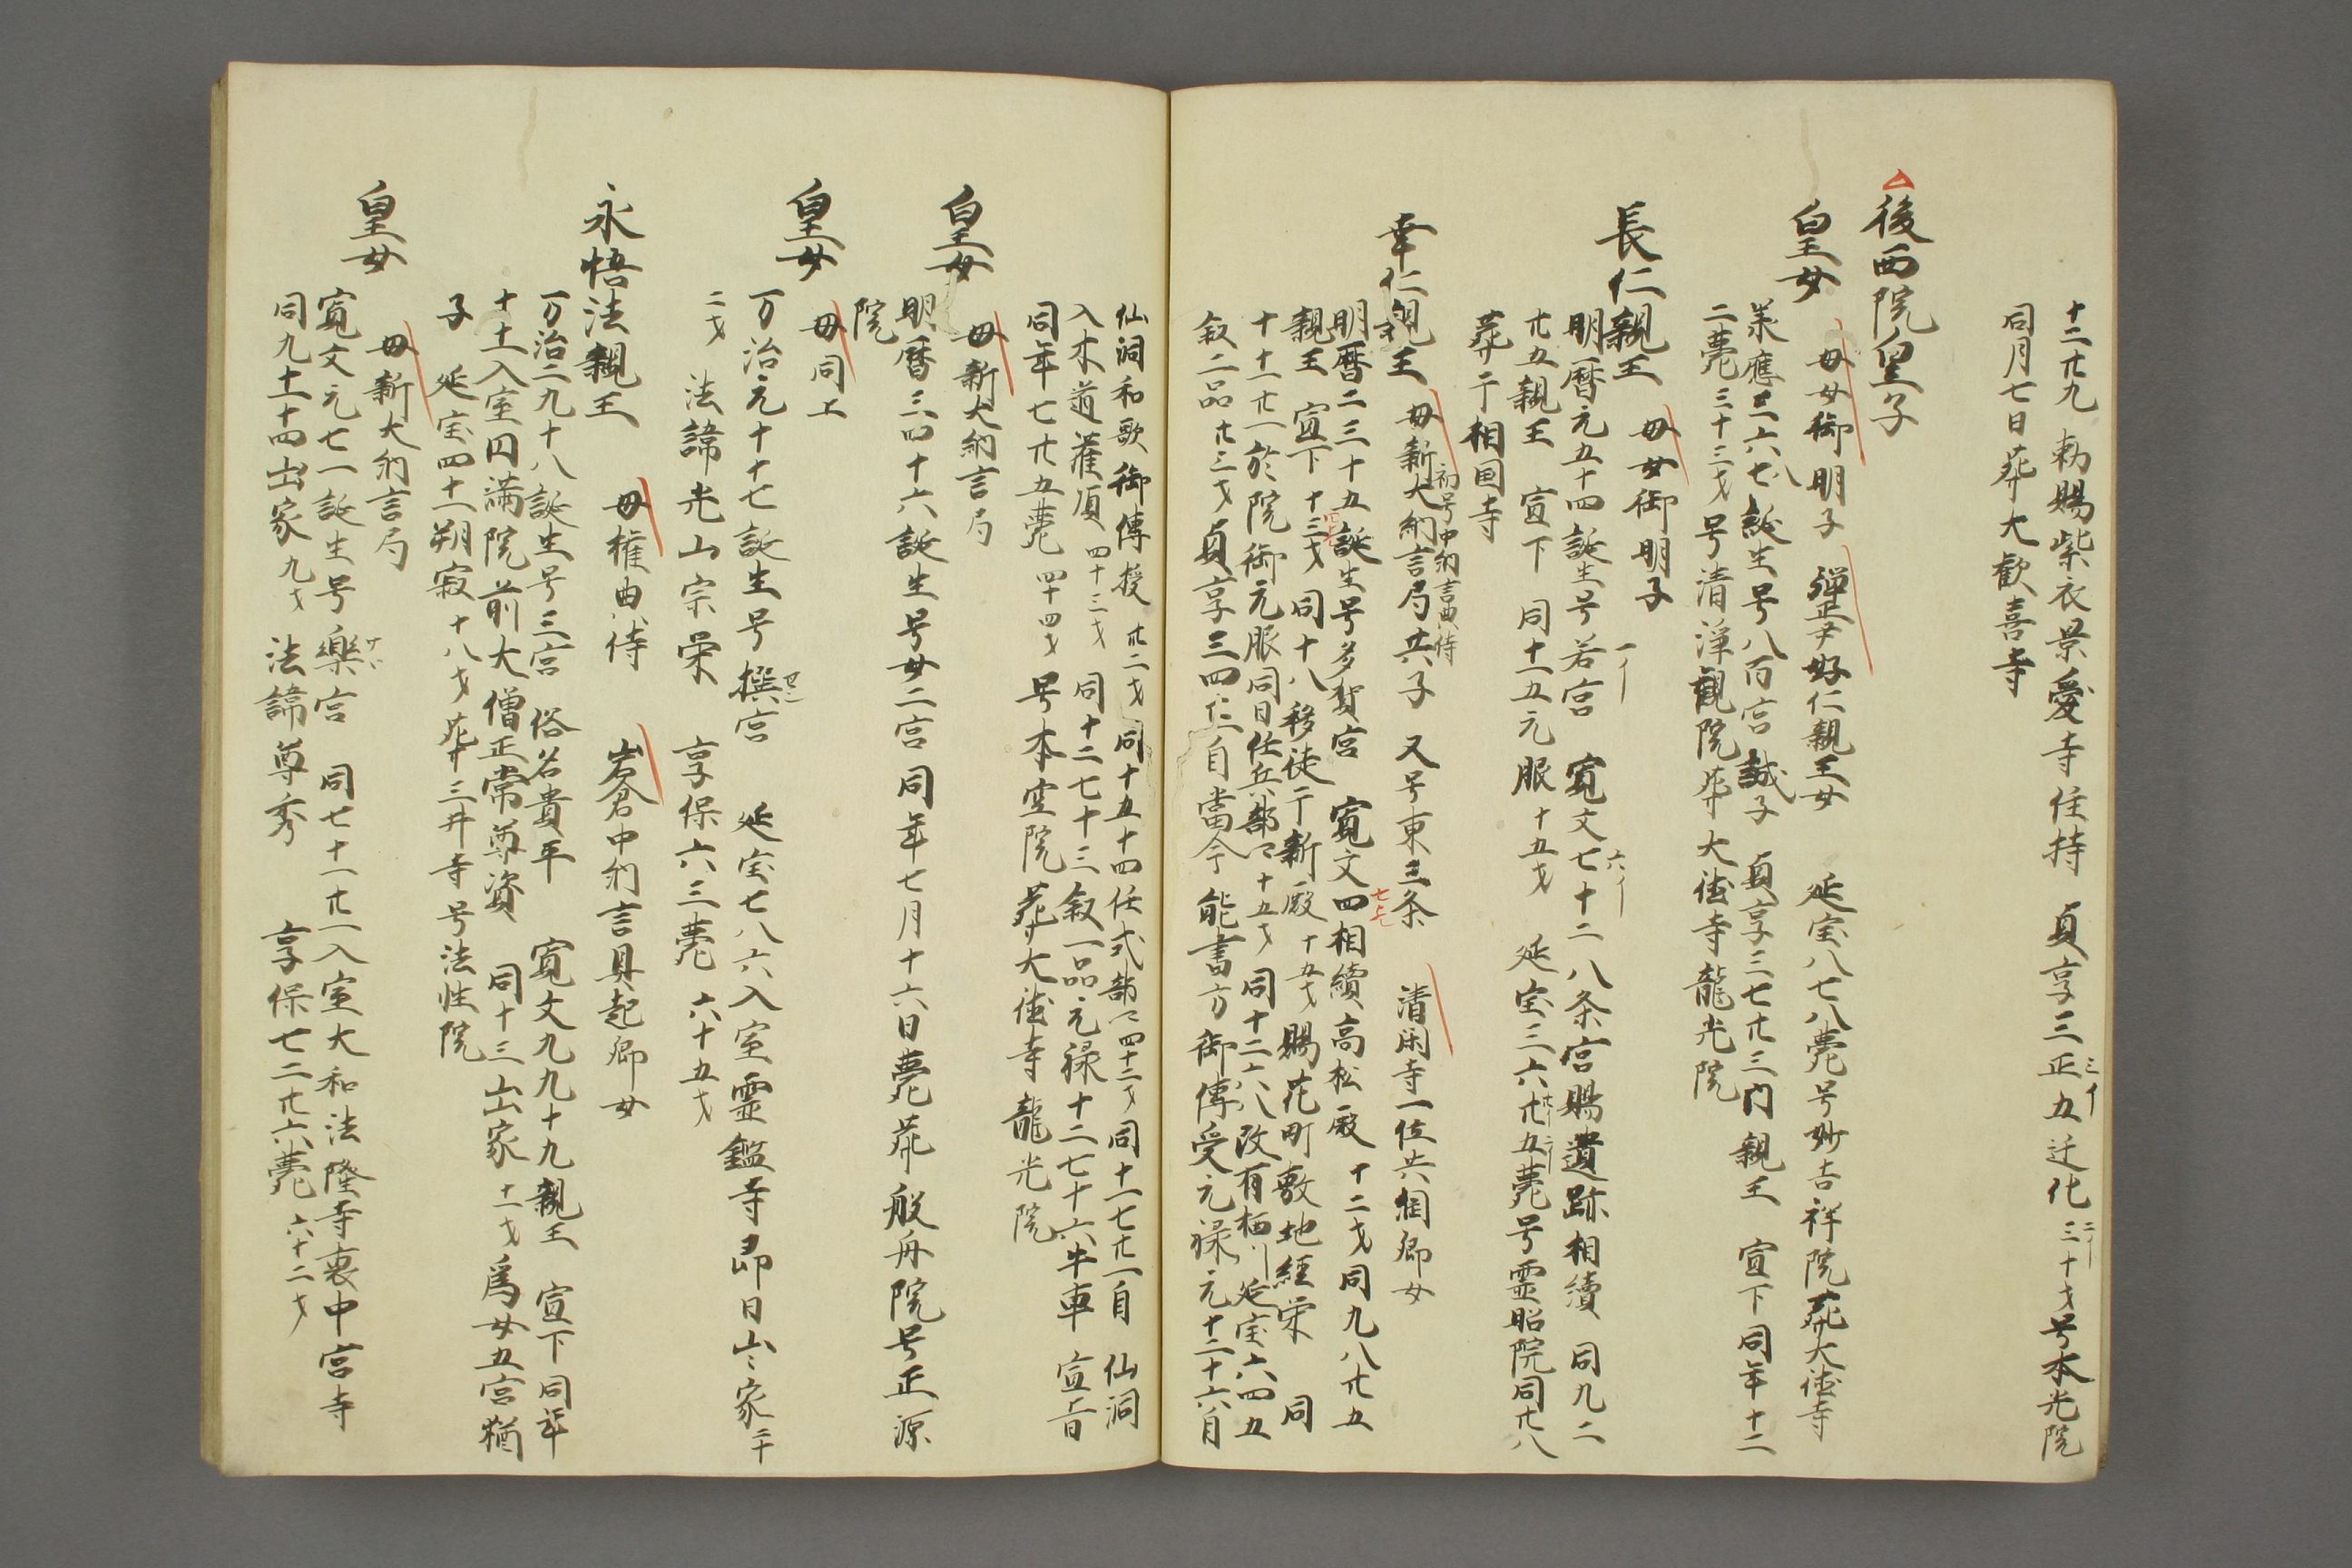 十二廿九　勅賜紫衣景愛寺住持　貞享三正五迁化三十才号本光院
同月七日葬大歓喜寺
後西院皇子
皇女　母女御明子　弾正尹好仁親王女　延宝八七八薨号妙吉祥院葬大徳寺
承應三六七誕生号八百宮誠子　貞享三七廿三内親王　宣下同年十二
二薨三十三才号清浄観院葬大徳寺龍光院
長仁親王　母女御明子
明暦元五十四誕生号若宮　寛文七十二八条宮賜遺跡相續　同九二
廿五親王　宣下　同十一五元服十五才　延宝三六廿五薨号霊昭院同廿八
葬于相国寺
幸仁親王　母新大納言局共子　又号東三条　清閑寺一位共綱卿女
初号中納言典侍
明暦二三十五誕生号多賀宮　寛文四相續高松殿十二才同九八廿五
親王　宣下十三才同十八移徙于新殿十五才賜花町敷地経栄　同
十十一廿一於院御元服同日任兵部卿十五才同十二六八改有栖川延宝六四五
叙二品廿三才貞享三四廿二自當今　能書方御傳受元禄元十二十六自
仙洞和歌御傳授廿二才同十五十四任式部卿四十二才同十一七廿一自　仙洞
入木道灌頂四十三才同十二七十三叙一品元禄十二七十六牛車　宣旨
同年七廿五薨四十四才号本空院葬大徳寺龍光院
皇女　母新大納言局
明暦三四十六誕生号女二宮同年七月十六日薨葬般舟院号正源
院
皇女　母同上
万治元十十七誕生号撰宮　延宝七八六入室霊鑑寺即日出家二十
二才　法諱光山宗栄　享保六三薨六十五才
永悟法親王　母権典侍　岩倉中納言具起卿女
万治二九十八誕生号三宮　俗名貴平　寛文九九十九親王　宣下同年
十十一入室円満院前大僧正常尊資　同十三出家十一才為女五宮猶
子　延宝四十一朔寂十八才葬三井寺号法性院
皇女　母新大納言局
寛文元七一誕生号楽宮　同七十一廿一入室大和法隆寺裏中宮寺
同九十一十四出家九才　法諱尊秀　享保七二廿六薨六十二才